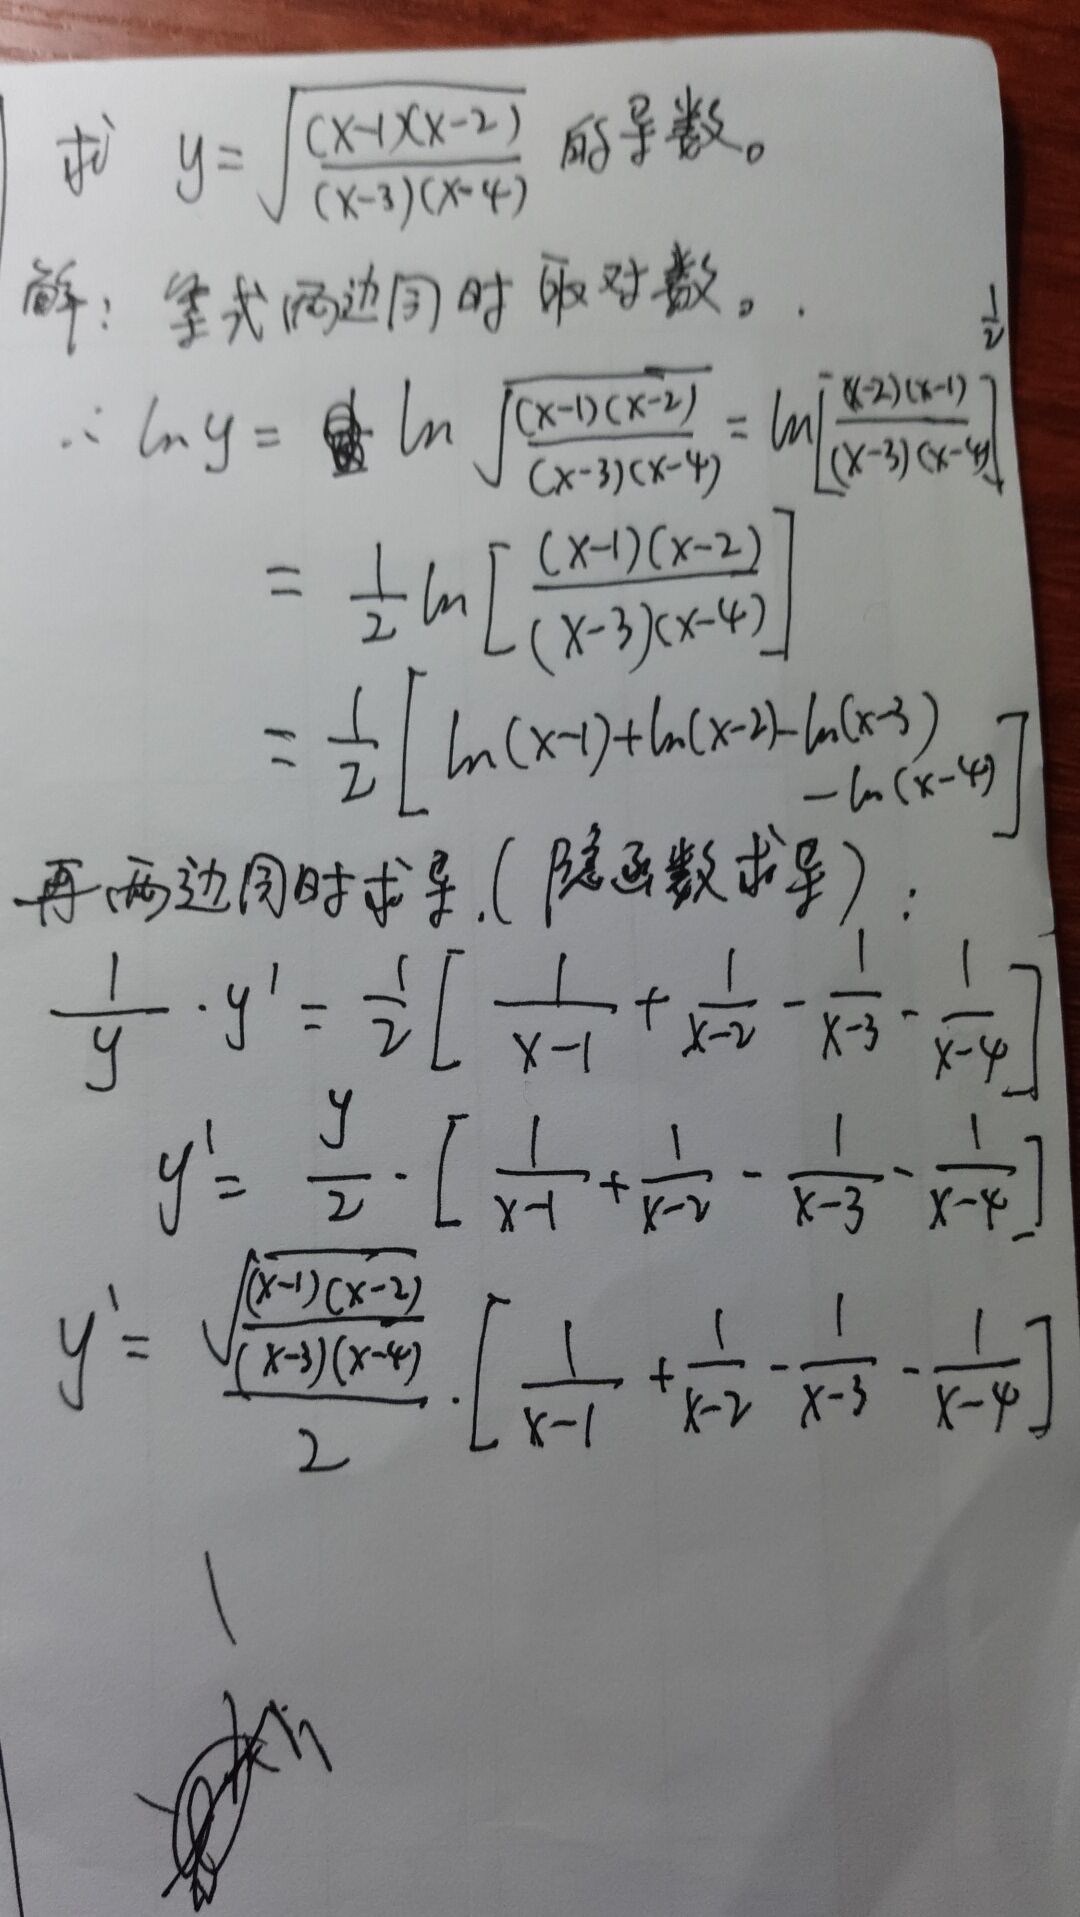 求 y=√((x-1)(x-2)/(x-3)(x-4)) 的导数。
解：等式两边同时取对数。
∴ ln y = ln √((x-1)(x-2)/(x-3)(x-4)) = ln[(x-2)(x-1)/(x-3)(x-4)]^(1/2)
= 1/2 ln[(x-1)(x-2)/(x-3)(x-4)]
= 1/2 [ln(x-1)+ln(x-2)-ln(x-3)
-ln(x-4)]
再两边同时求导.(隐函数求导)：
1/y · y' = 1/2 [1/(x-1) + 1/(x-2) - 1/(x-3) - 1/(x-4)]
y' = y/2 · [1/(x-1) + 1/(x-2) - 1/(x-3) - 1/(x-4)]
y' = √((x-1)(x-2)/(x-3)(x-4))/2 · [1/(x-1) + 1/(x-2) - 1/(x-3) - 1/(x-4)]